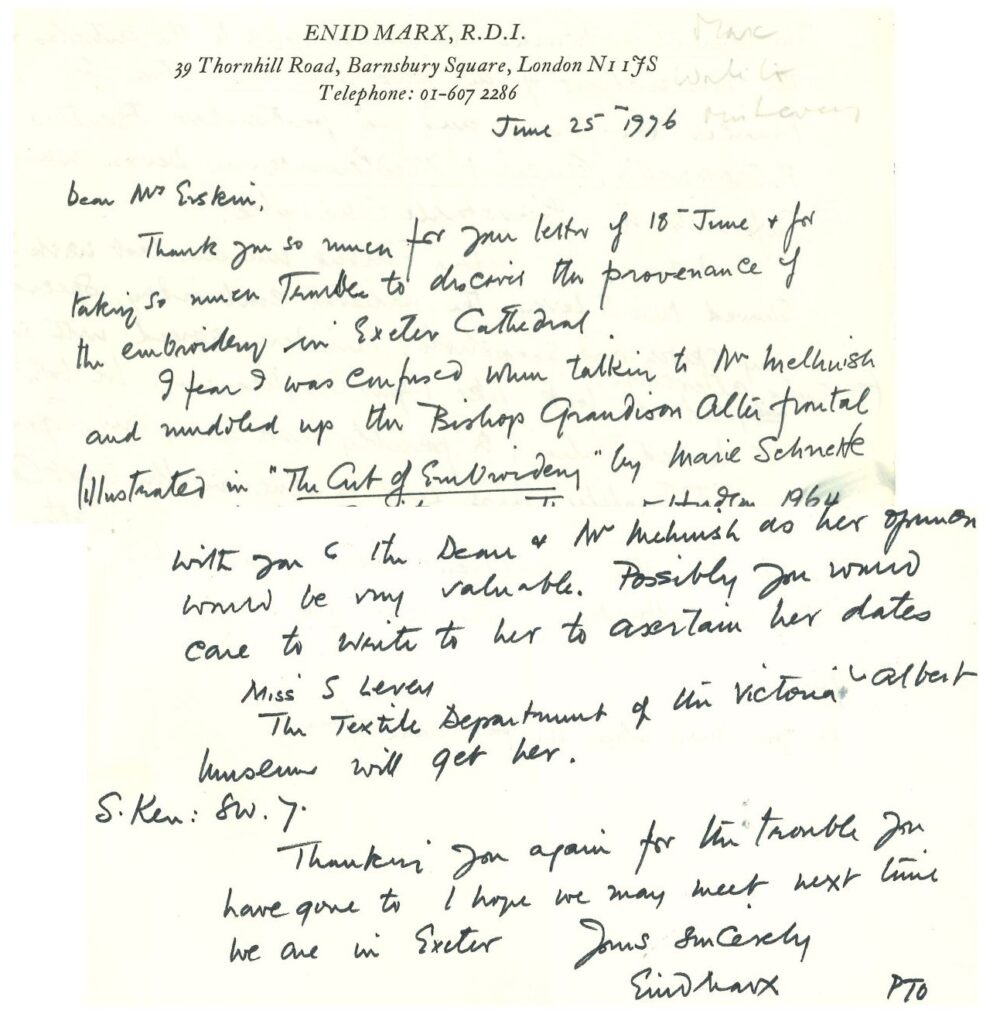 ENID MARX, R.D.I.
39 Thornhill Road, Barnsbury Square, London N1 1JS
Telephone: 01-607 2286
Marx
write to
Miss Levey
June 25 1976
Dear Mrs Erskin,
Thank you so much for your letter of 18 June & for
taking so much Trouble to discover the provenance of
the embroidery in Exeter Cathedral.
I fear I was confused when talking to Mr Melhuish
and muddled up the Bishop Grandison Alter frontal
(illustrated in "The Art of Embroidery" by Marie Schuette
1964
with you & the Dean & Mr Melhuish as her opinion
would be very valuable. Possibly you would
care to write to her to asertain her dates
Miss S Levey
The Textile Department of the Victoria & Albert
Museum will get her.
S. Ken: SW. 7.
Thanking you again for the trouble you
have gone to I hope we may meet next time
we are in Exeter Yours sincerely
Enid Marx
PTO